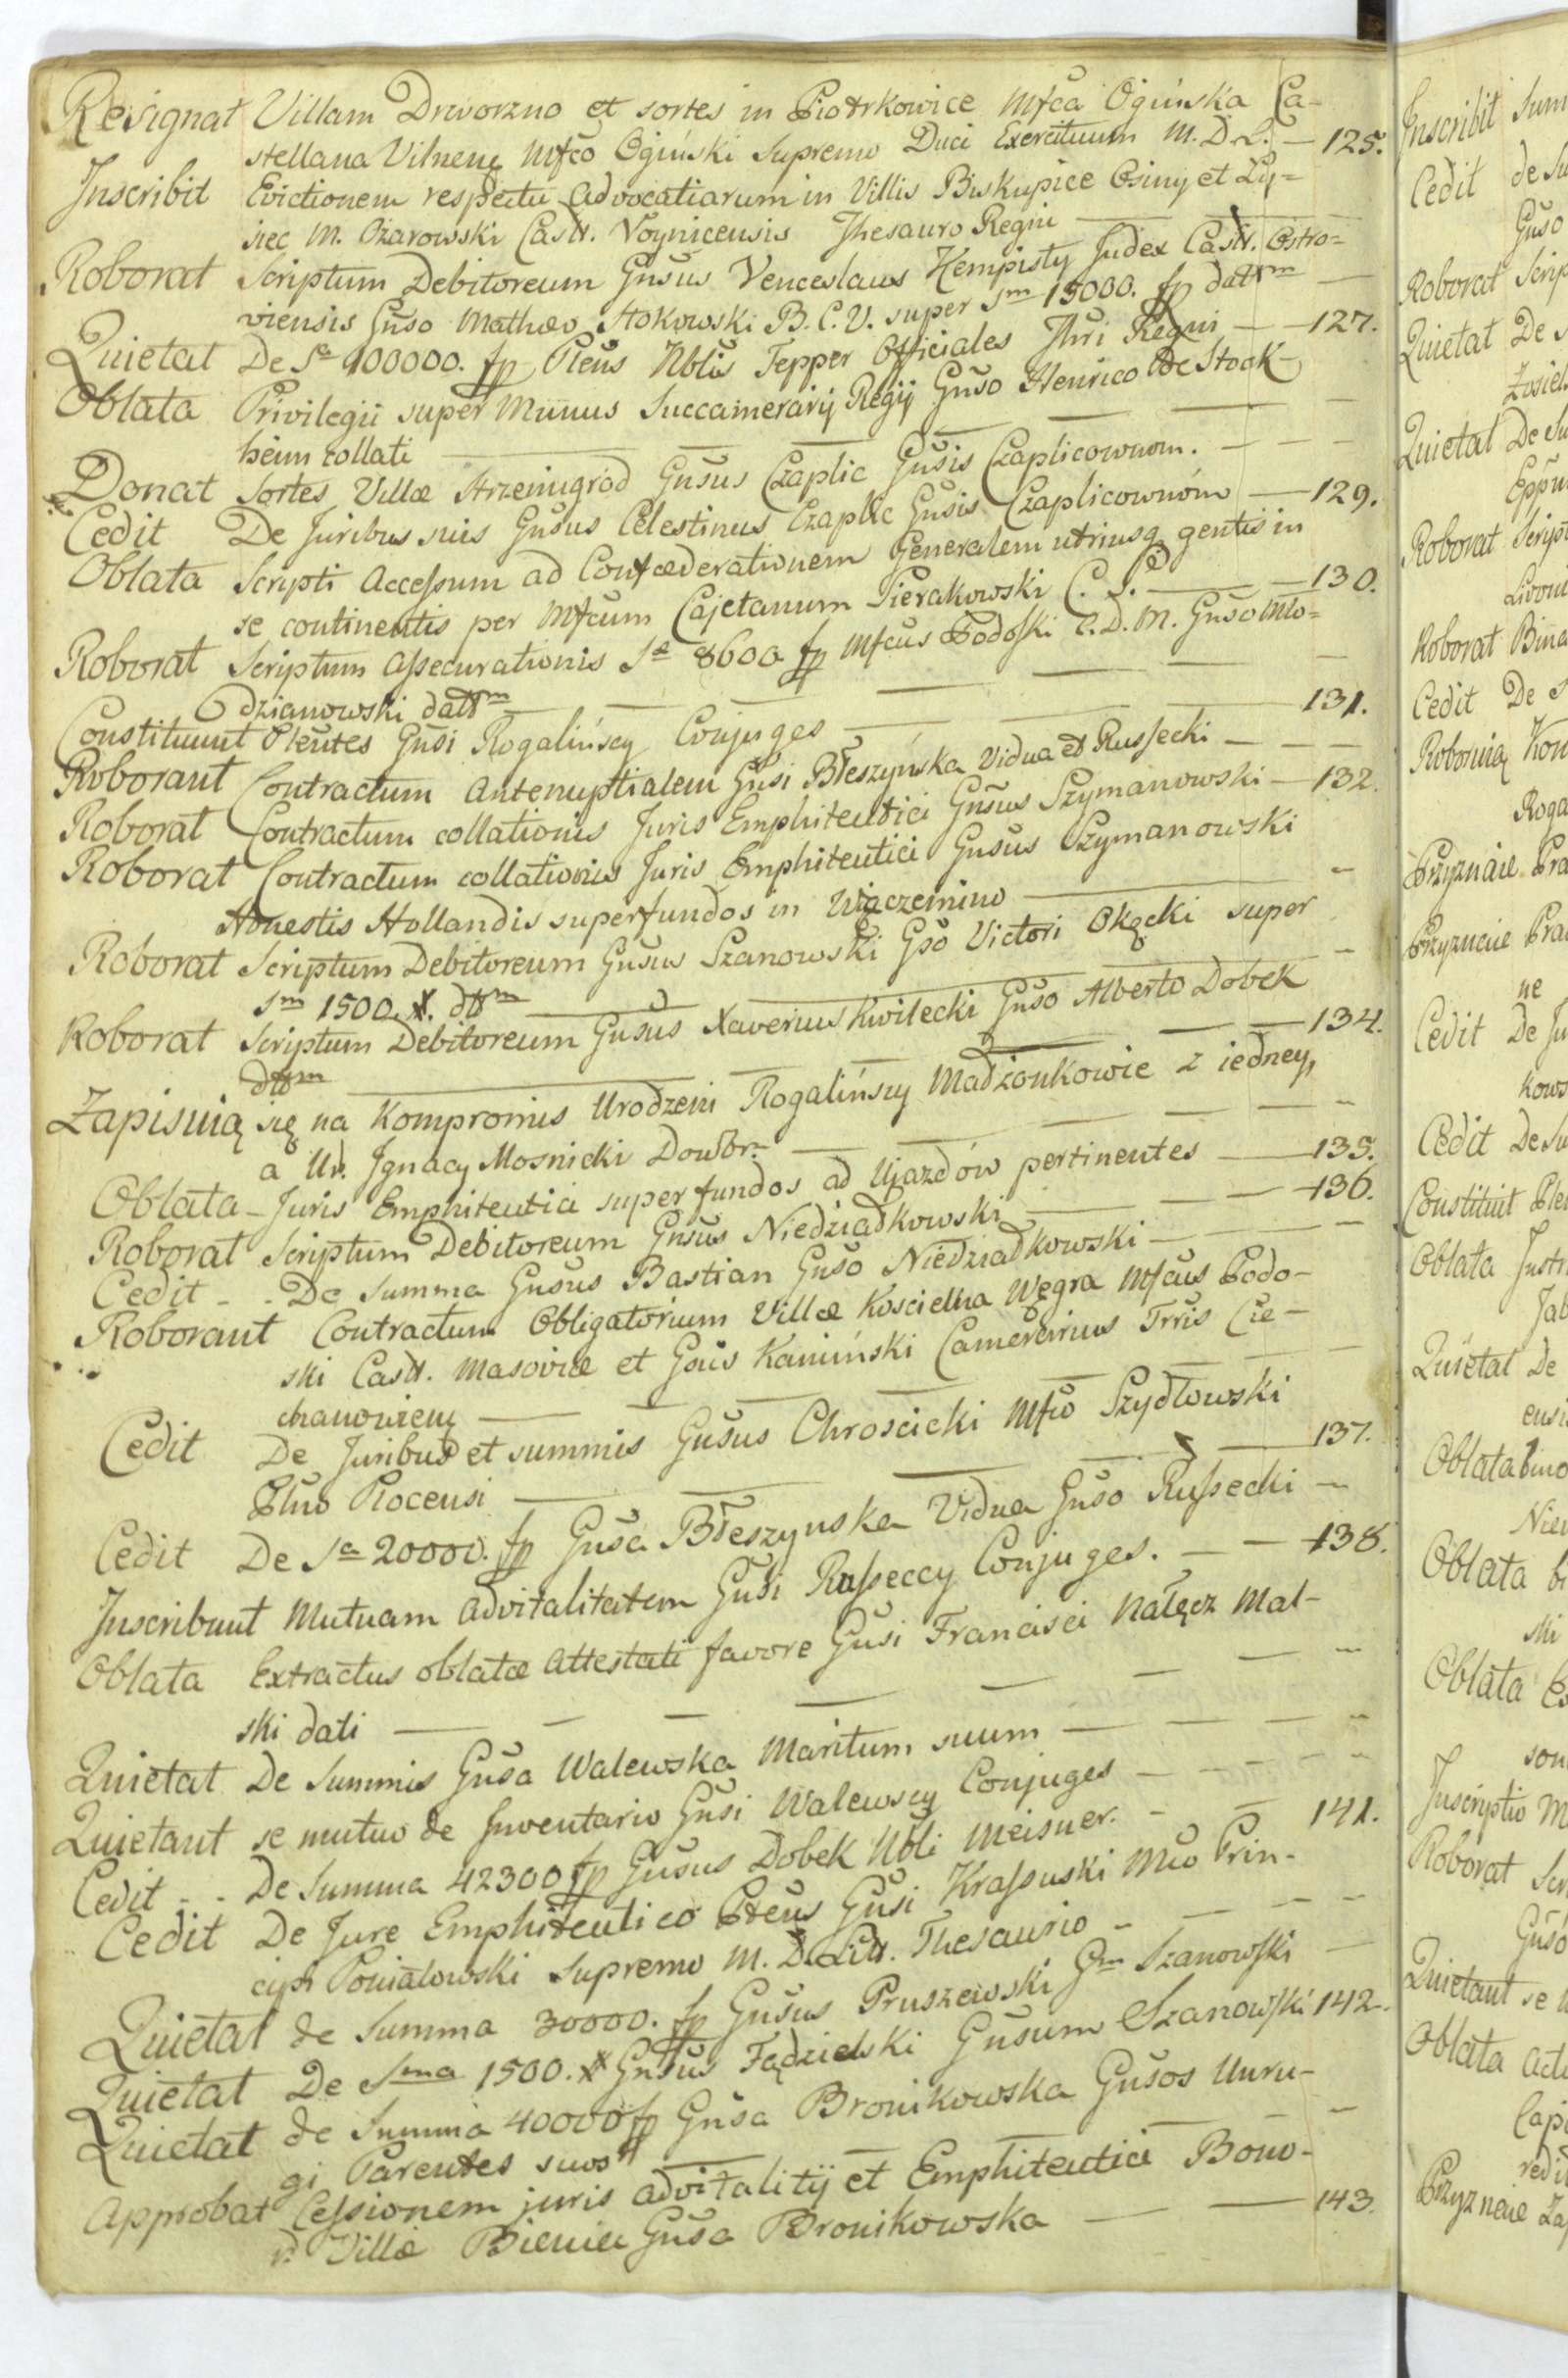 Resignat Villam Drworzno et sortes in Piotrkowice Mfca Ogińska Ca-
stellana Vilnenę Mfco Ogiński Supremo Duci Exercituum M.D.L. — 125.
Inscribit Evictionem respectu advocatiarum in Villis Biskupice Osiny et Ły=
siec M. Ożarowski Castr. Voynicensis Thesauro Regni
Roborat Scriptum Debitoreum Gnsus Venceslaus Hempisty Judex Castr. Ostro=
viensis Gnso Mathæo Stokowski B. C. V. super Sm 15000. fp dattm —
Quietat De Sa 100000. fp Pleus Nblis Tepper Officiales Thri Regni — — 127.
Oblata Privilegii super Munus Succamerarij Regij Gnso Henrico de Stock-
heim collati — — —
Donat Sortes Villæ Strzemigrod Gnsus Czaplic Gnsis Czaplicownom. — — —
Cedit De Juribus suis Gnsus Celestinus Czaplic Gnsis Czaplicownóm — 129.
Oblata Scripti Accessum ad Confœderationem Generalem utriusq gentis in
se continentis per Mfcum Cajetanum Sierakowski C. S. — — 130.
Roborat Scriptum Assecurationis Sæ 8600 fp Mfcus Podoski C. D. M. Gnso Mło=
dzianowski dattm — — — —
Constituunt Plentes Gnsi Rogalińscy Conjuges — — 131.
Roborant Contractum Antenuptialem Gnsi Błeszyńska Vidua et Russecki — — —
Roborat Contractum collationis Juris Emphiteutici Gnsus Szymanowski — 132.
Roborat Contractum collationis Juris Emphiteutici Gnsus Szymanowski
Honestis Hollandis super fundos in Wiączemino — —
Roborat Scriptum Debitoreum Gnsus Szanowski Gso Victori Okęcki super
Sm 1500 #. dttm — —
Roborat Scriptum Debitoreum Gnsus Xaverius Kwilecki Gnso Alberto Dobek
dttm — — — 134.
Zapisuią się na Kompromis Urodzeni Rogalińscy Madżonkowie z iedney,
a Ur. Jgnacy Mosnicki Dowbr. — — — —
Oblata — Juris Emphiteutici super fundos ad Ujazdów pertinentes — 135.
Roborat Scriptum Debitoreum Gnsus Niedziadkowski — — — 136.
Cedit - - De Summa Gnsus Bastian Gnso Niedziadkowski — — —
Roborant Contractum Obligatorium Villæ Koscielna Węgra Mfcus Podo-
ski Castr. Masoviæ et Gsus Kamiński Camerarius Trris Cie-
chanovienę — — — —
Cedit De Juribus et summis Gnsus Chroscicki Mfco Szydłowski
Plno Plocensi — — — 137.
Cedit De Sa 20000. fp Gnsa Błeszynska Vidua Gnso Russecki —
Inscribunt Mutuam advitalitatem Gnsi Russeccy Conjuges. — — 138.
Oblata Extractus oblatæ Attestati favore Gnsi Francisci Nałęcz Mal-
ski dati — — — — — — —
Quietat De Summis Gnsa Walewska Maritum suum — — — —
Quietant se mutuo de Inventario Gnsi Walewscy Conjuges — — — —
Cedit - - De Summa 42300 fp Gnsus Dobek Nbli Meisner. - — 141.
Cedit De Jure Emphiteutico Pleus Gnsi Krassuski Mco Prin-
cipi Poniatowski Supremo M. D. Litt. Thesaurio - — — —
Quietat de Summa 30000. fp Gnsus Pruszewski Gm Szanowski —
Quietat De Sma 1500. # Gnsus Fądzielski Gnsum Szanowski 142.
Quietat de Summa 40000 fp Gnsa Bronikowska Gnsos Unru-
gi Parentes suos — —
Approbat Cessionem juris advitalitij et Emphiteutici Bono-
r. Villæ Bieniec Gnsa Bronikowska — — 143.
Inscribit Sum
Cedit de Su
Gnso
Roborat Scrip
Quietat De
Quietat De Su
Roborat Script
Roborat Bina
Cedit De S
Roga
Przyznaie Pra
Przyznaie Pra
ne
Cedit De Ju
kows
Cedit De Su
Constituit Ple
Oblata Instr
Jab
Quietat De
ensi
Oblata bino
Nie
Oblata bi
ski
Oblata
Inscriptio M
Roborat Scr
Gnso
Quietant se
Oblata Act
Capi
Przyznaie Za